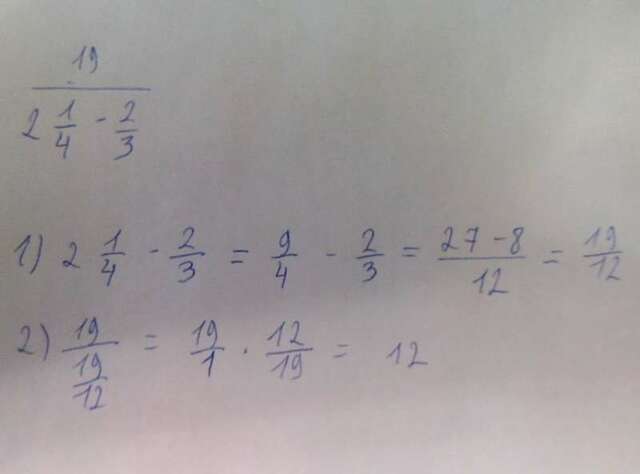 19 / (2 1/4 - 2/3)
1) 2 1/4 - 2/3 = 9/4 - 2/3 = (27-8)/12 = 19/12
2) 19/(19/12) = 19/1 · 12/19 = 12